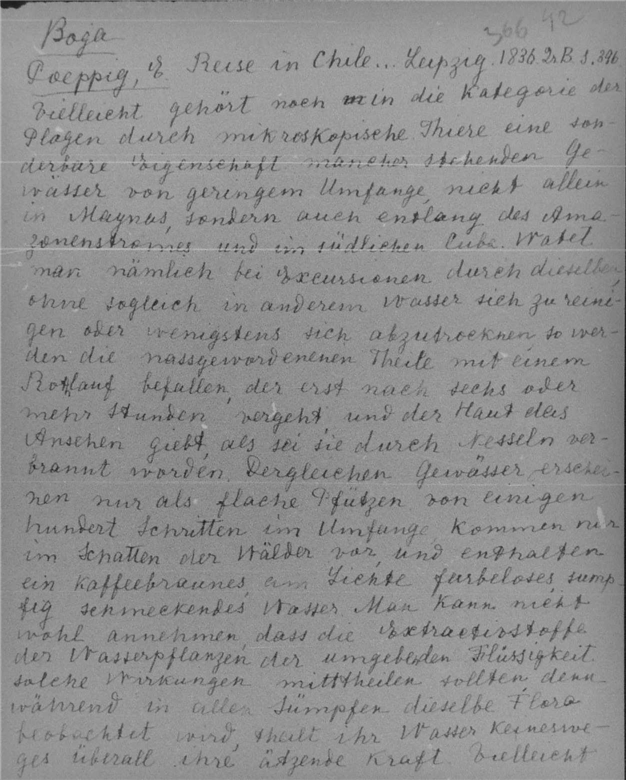 366 42
Boga
Poeppig, E Reise in Chile... Leipzig. 1836. 2r B. S. 396
Vielleicht gehört noch in die Kategorie der
Plagen durch mikroskopische Thiere eine son-
derbare Eigenschaft mancher stehenden Ge-
wässer von geringem Umfange, nicht allein
in Maynas, sondern auch entlang des Ama-
zonenstromes und im südlichen Cuba. Watet
man nämlich bei Excursionen durch dieselben,
ohne sogleich in anderem Wasser sich zu reini-
gen oder wenigstens sich abzutrocknen so wer-
den die nassgewordenenen Theile mit einem
Rothlauf befallen, der erst nach sechs oder
mehr Stunden, vergeht, und der Haut das
Ansehen giebt, als sei sie durch Nesseln ver-
brannt worden. Dergleichen Gewässer erschei-
nen nur als flache Pfützen von einigen
hundert Schritten im Umfange, kommen nur
im Schatten der Wälder vor, und enthalten
ein kaffeebraunes, am Lichte farbeloses, sump-
fig schmeckendes Wasser. Man kann nicht
wohl annehmen, dass die Extractivstoffe
der Wasserpflanzen, der umgebenden Flüssigkeit
solche Wirkungen mitttheilen sollten, denn
während in allen Sümpfen dieselbe Flora
beobachtet wird, theilt ihr Wasser keineswe-
ges überall ihre ätzende Kraft. Vielleicht